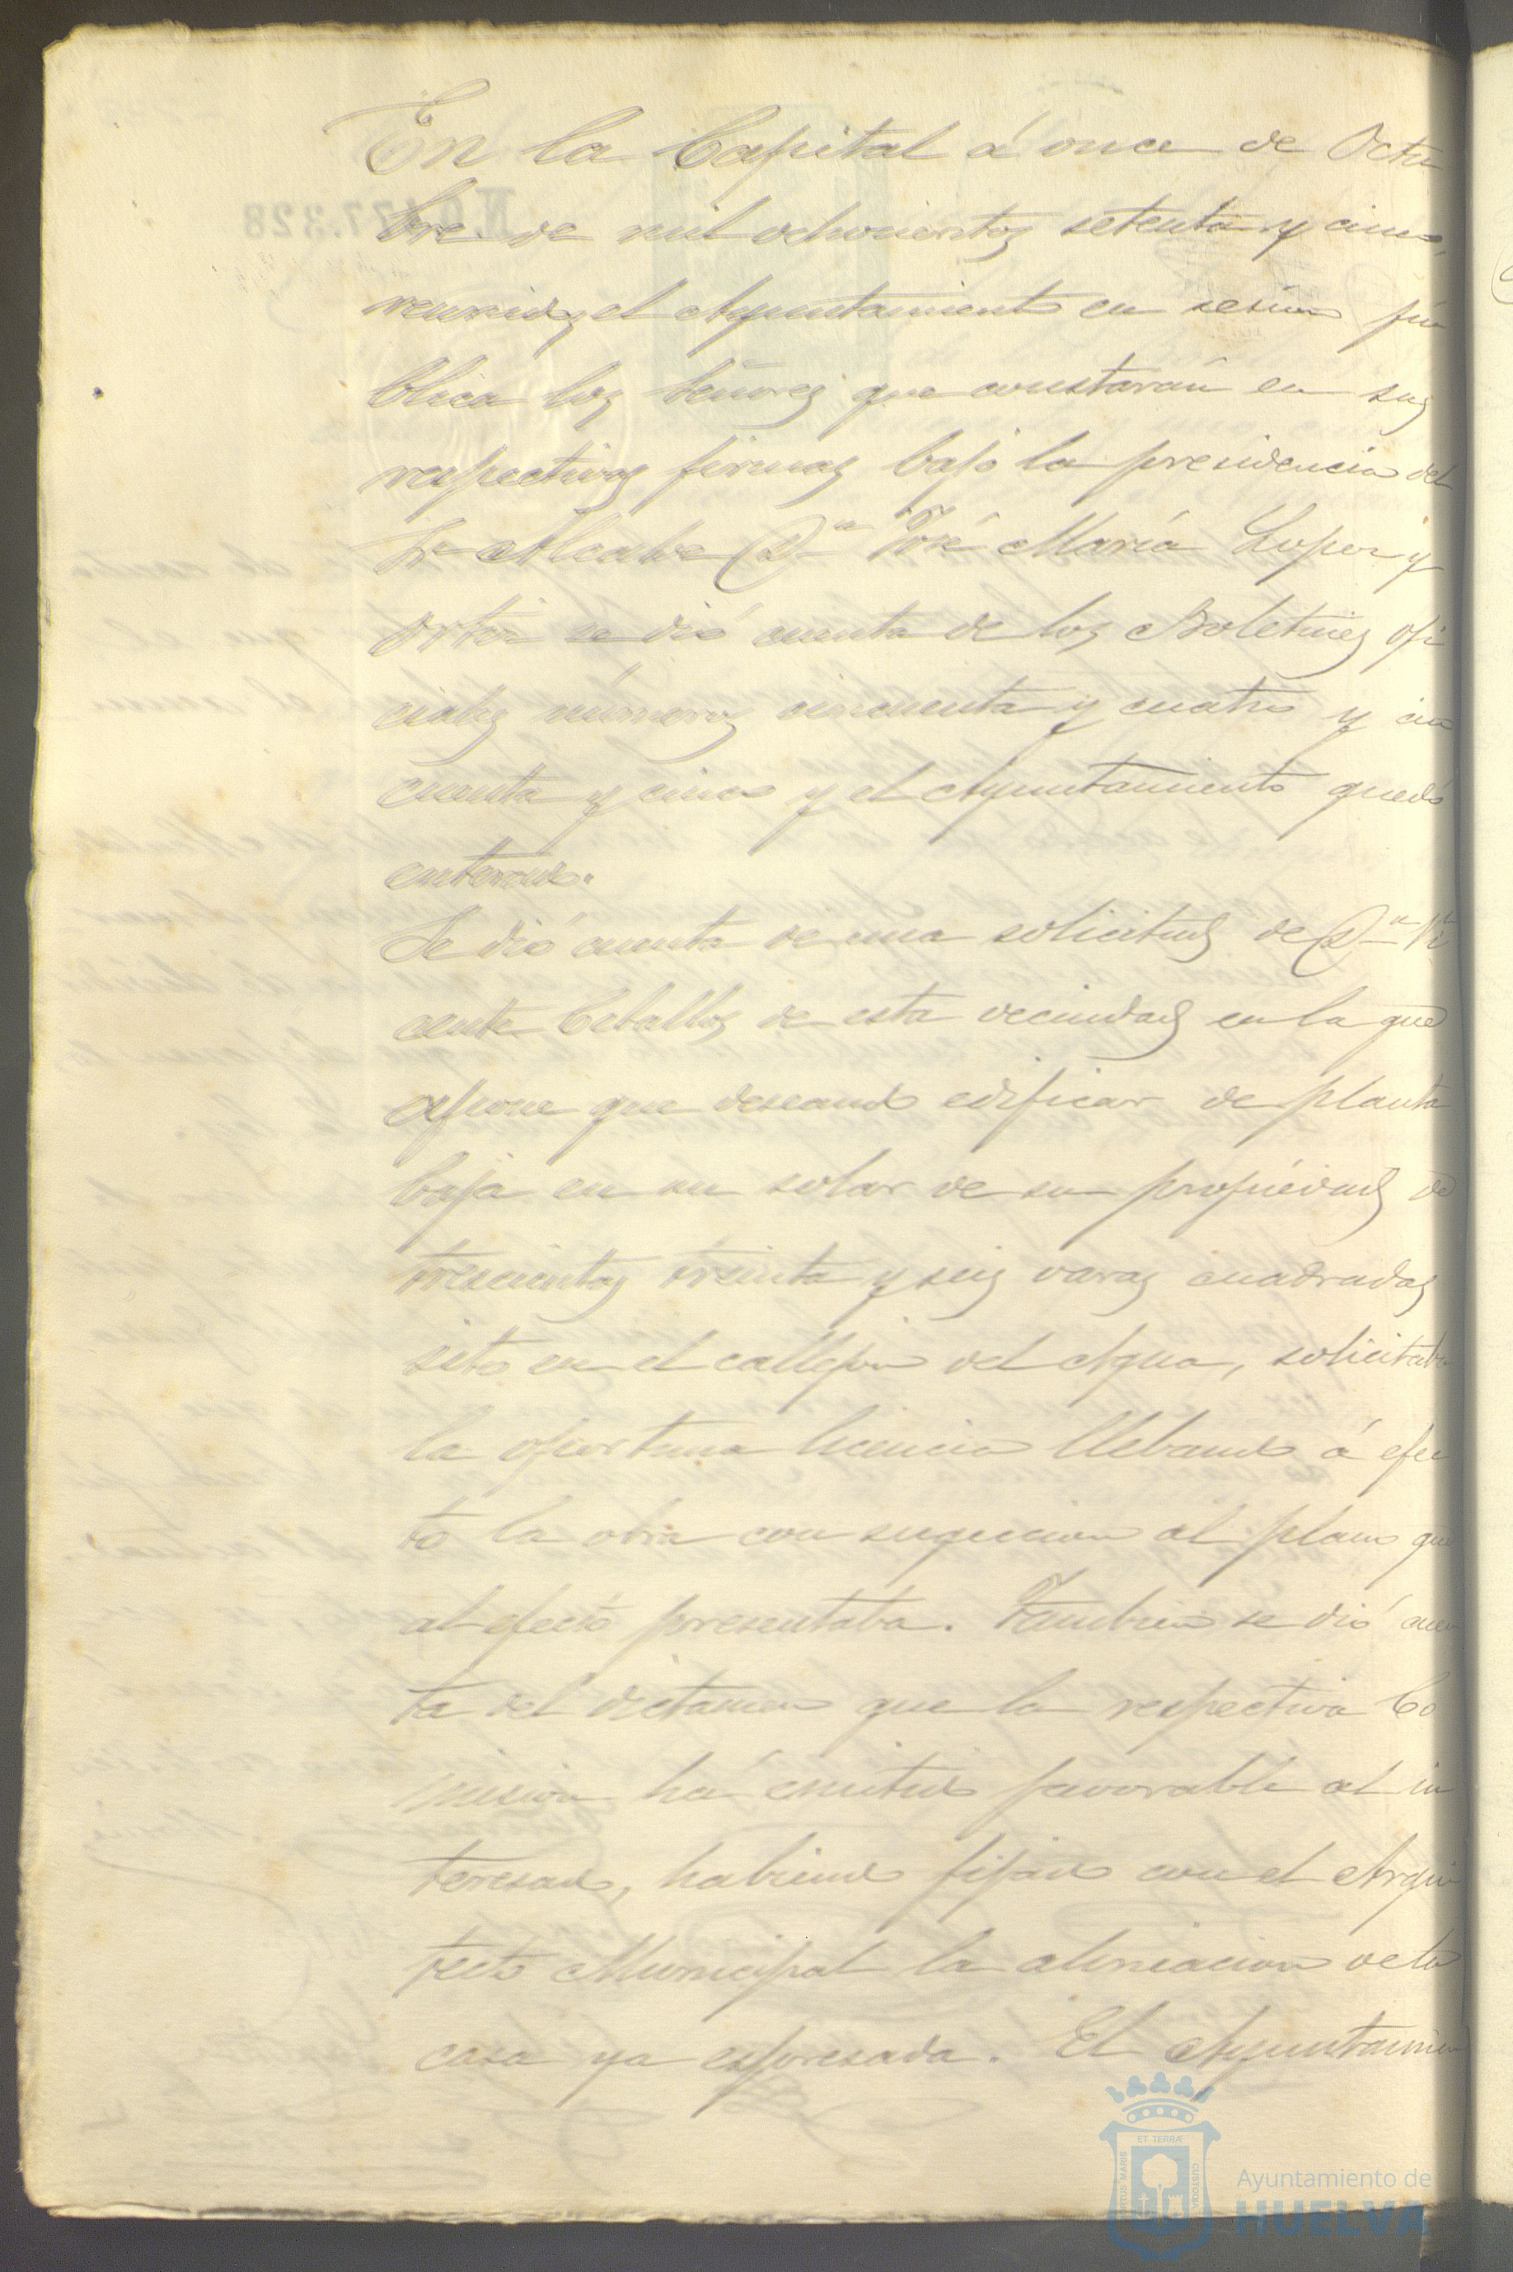 En la Capital á once de Octu
bre de mil ochocientos setenta y cinco,
reunidos el Ayuntamiento en sesion pú
blica los Señores que constarán en sus
respectivas firmas bajo la presidencia del
Sr Alcalde Dn José María Lopez y
Ortiz se dió cuenta de los Boletines ofi
ciales números cincuenta y cuatro y cin
cuenta y cinco y el Ayuntamiento quedó
enterado.
Se dió cuenta de una solicitud de Dn Vi
cente Ceballos de esta vecindad en la que
espone que deseando edificar de planta
baja en un solar de su propiedad de
trescientas treinta y seis varas cuadradas
sito en el callejon del Agua, solicitaba
la oportuna licencia llebando á efec
to la obra con sugecion al plano que
al efecto presentaba. Tambien se dió cuen
ta del dictamen que la respectiva Co
mision há emitido favorable al in
teresado, habiendo fijado con el Arqui
tecto Municipal la alineacion de la
casa ya espresada. El Ayuntamien
N.0.177.328
ET TERRÆ
PORTUS MARIS
CUSTODIA
Ayuntamiento de
HUELVA